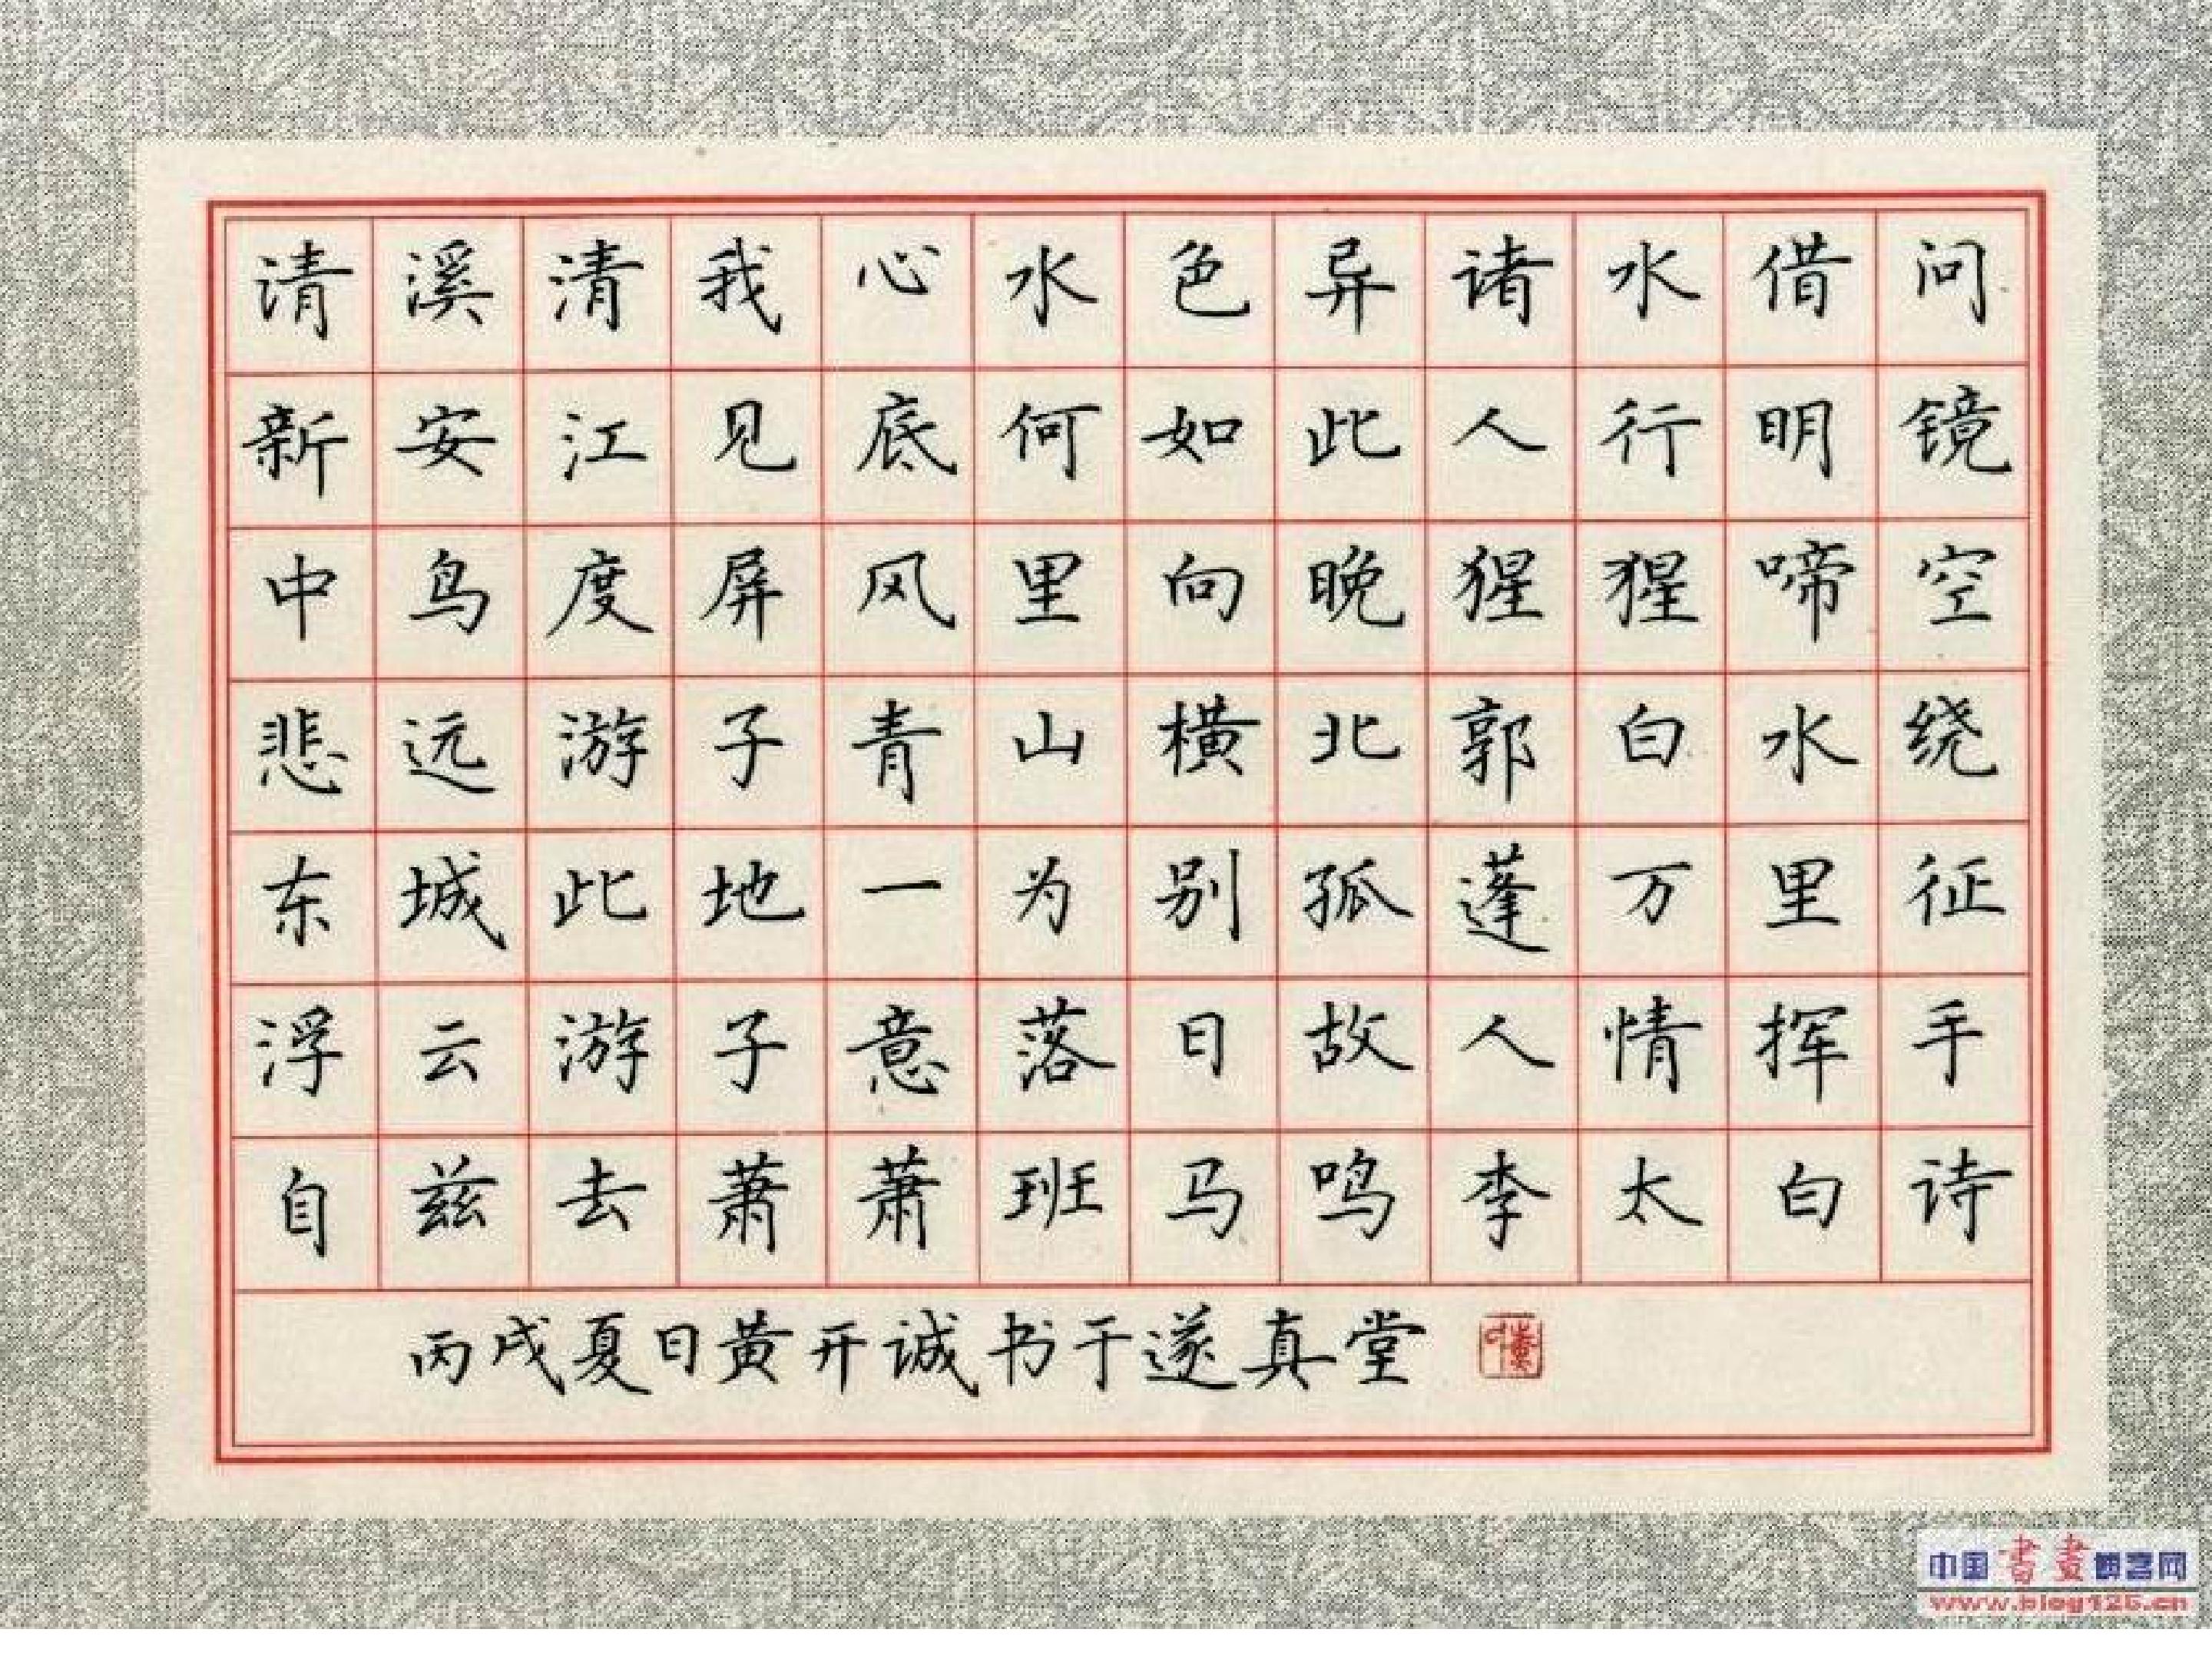 请溪清我心水色异诸水借问
新安江见底何如此人行明镜
中鸟度屏风里向晚猩猩啼空
悲远游子青山横北郭白水绕
东城此地一为别孤蓬万里征
浮云游子意落日故人情挥手
自兹去萧萧班马鸣李太白诗
丙戌夏日黄开诚书于遂真堂
中国書畫博客网
www.blog126.cn